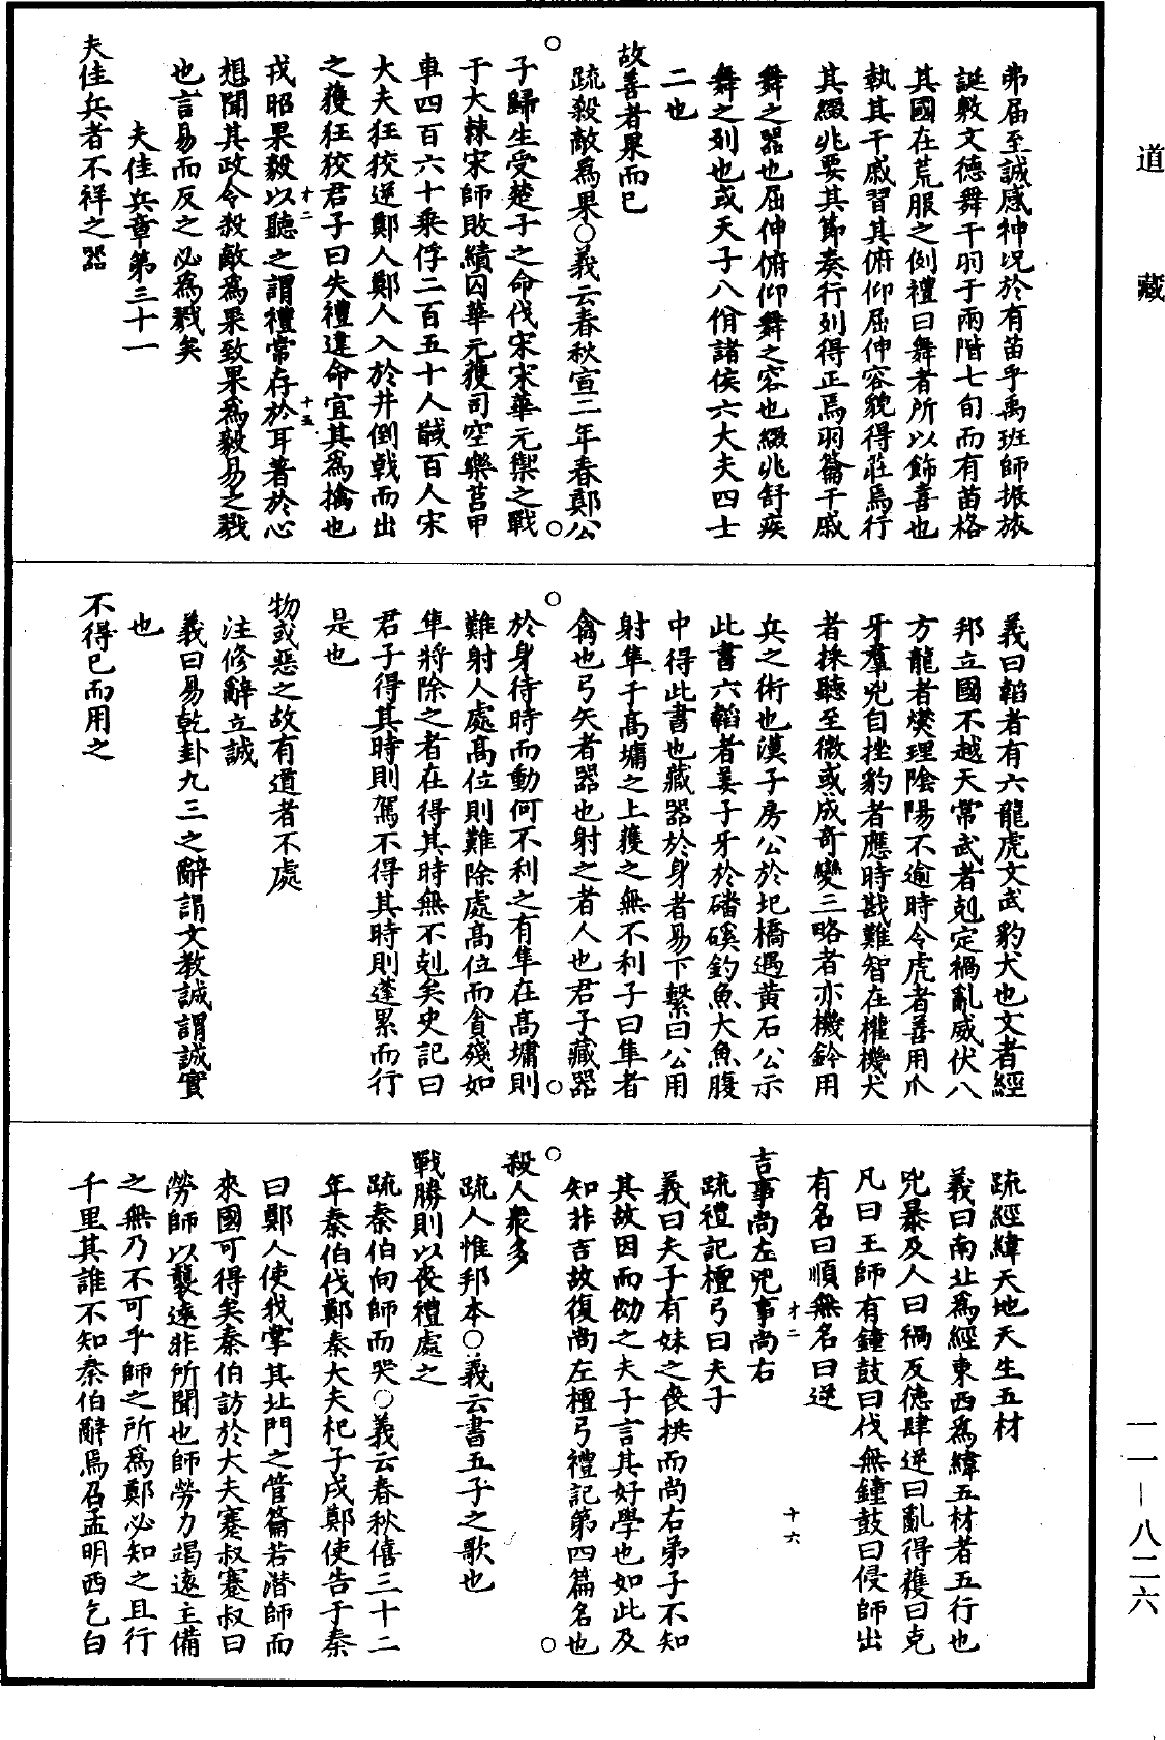 道藏
弗届至誠感神況於有苗乎禹班師振旅
誕敷文德舞干羽于兩階七旬而有苗格
其國在荒服之例禮曰舞者所以飾喜也
執其干戚習其俯仰屈伸容貌得莊焉行
其綴兆要其節奏行列得正焉羽籥干戚
舞之器也屈伸俯仰舞之容也綴兆舒疾
舞之列也或天子八佾諸侯六大夫四士
二也
故善者果而已
疏殺敵為果○義云春秋宣二年春鄭公
子歸生受楚子之命伐宋宋華元禦之戰
于大棘宋師敗績囚華元獲司空樂莒甲
車四百六十乘俘二百五十人馘百人宋
大夫狂狡逆鄭人鄭人入於井倒戟而出
之獲狂狡君子曰失禮違命宜其為擒也
戎昭果毅以聽之謂禮常存於耳著於心
想聞其政令殺敵為果致果為毅易之戮
也言易而反之必為戮矣
夫佳兵章第三十一
夫佳兵者不祥之器
才二
十五
義曰韜者有六龍虎文武豹犬也文者經
邦立國不越天常武者剋定禍亂威伏八
方龍者燮理陰陽不逾時令虎者善用爪
牙羣兇自挫豹者應時戡難智在權機犬
者採聽至微或成奇變三略者亦機鈐用
兵之術也漢子房公於圯橋遇黃石公示
此書六韜者姜子牙於磻磎釣魚大魚腹
中得此書也藏器於身者易下繫曰公用
射隼于高墉之上獲之無不利子曰隼者
禽也弓矢者器也射之者人也君子藏器
於身待時而動何不利之有隼在高墉則
難射人處高位則難除處高位而貪殘如
隼將除之者在得其時無不剋矣史記曰
君子得其時則駕不得其時則蓬累而行
是也
物或惡之故有道者不處
注修辭立誠
義曰易乾卦九三之辭謂文教誠謂誠實
也
不得已而用之
疏經緯天地天生五材
義曰南北為經東西為緯五材者五行也
兇暴及人曰禍反德肆逆曰亂得獲曰克
凡曰王師有鐘鼓曰伐無鐘鼓曰侵師出
有名曰順無名曰逆
吉事尚左兇事尚右
疏禮記檀弓曰夫子
義曰夫子有妹之喪拱而尚右弟子不知
其故因而效之夫子言其好學也如此及
知非吉故復尚左檀弓禮記第四篇名也
殺人衆多
疏人惟邦本○義云書五子之歌也
戰勝則以喪禮處之
疏秦伯向師而哭○義云春秋僖三十二
年秦伯伐鄭秦大夫杞子戍鄭使告于秦
曰鄭人使我掌其北門之管籥若潛師而
來國可得矣秦伯訪於大夫蹇叔蹇叔曰
勞師以襲遠非所聞也師勞力竭遠主備
之無乃不可乎師之所為鄭必知之且行
千里其誰不知秦伯辭焉召孟明西乞白
才二
十六
一一—八二六